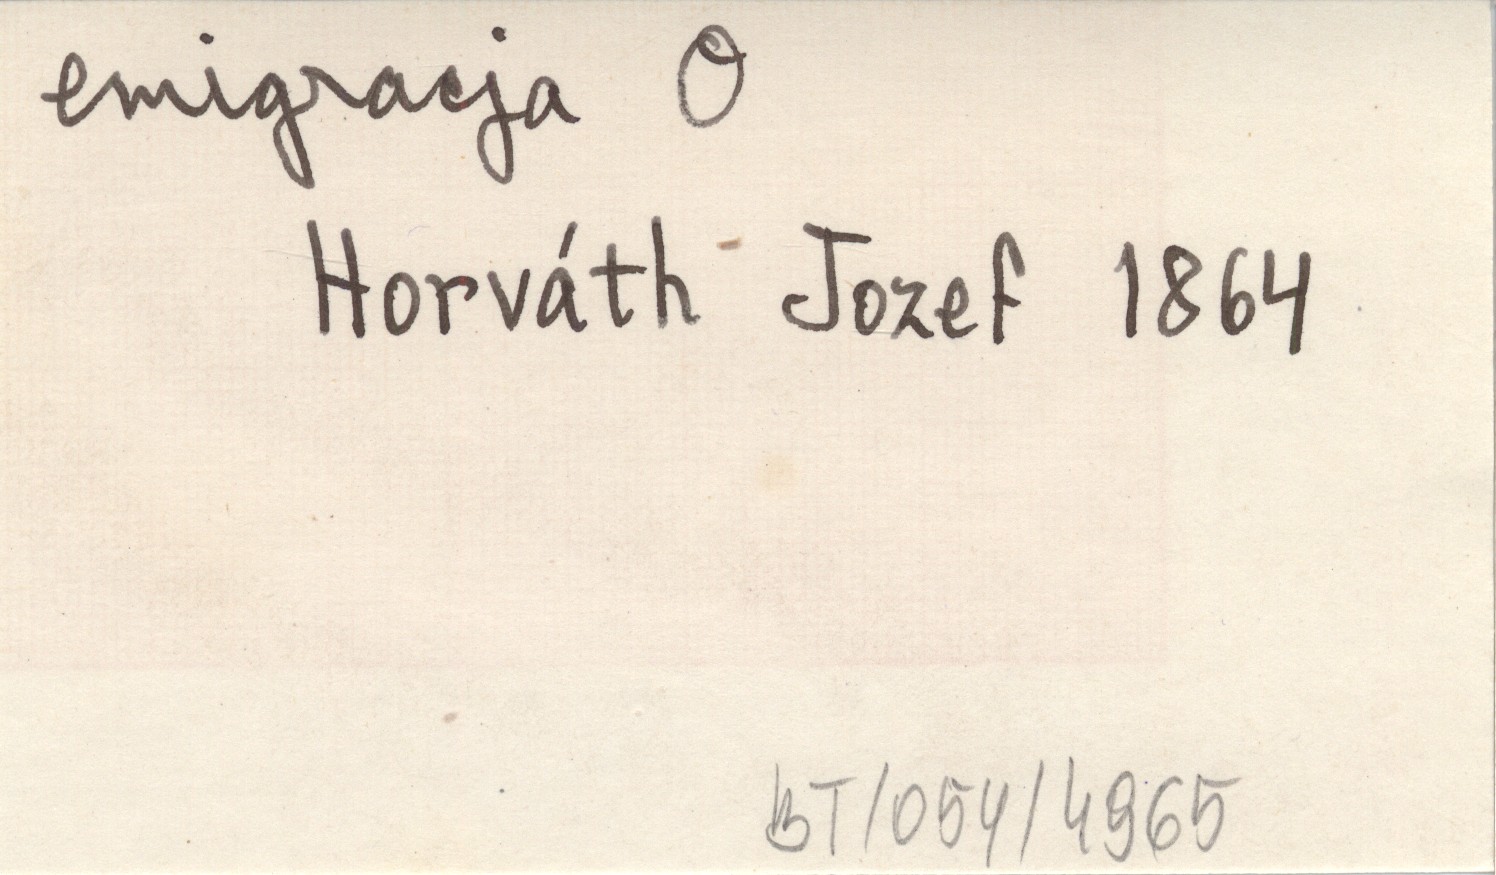 emigracja O
Horváth Jozef 1864
BT/054/4965